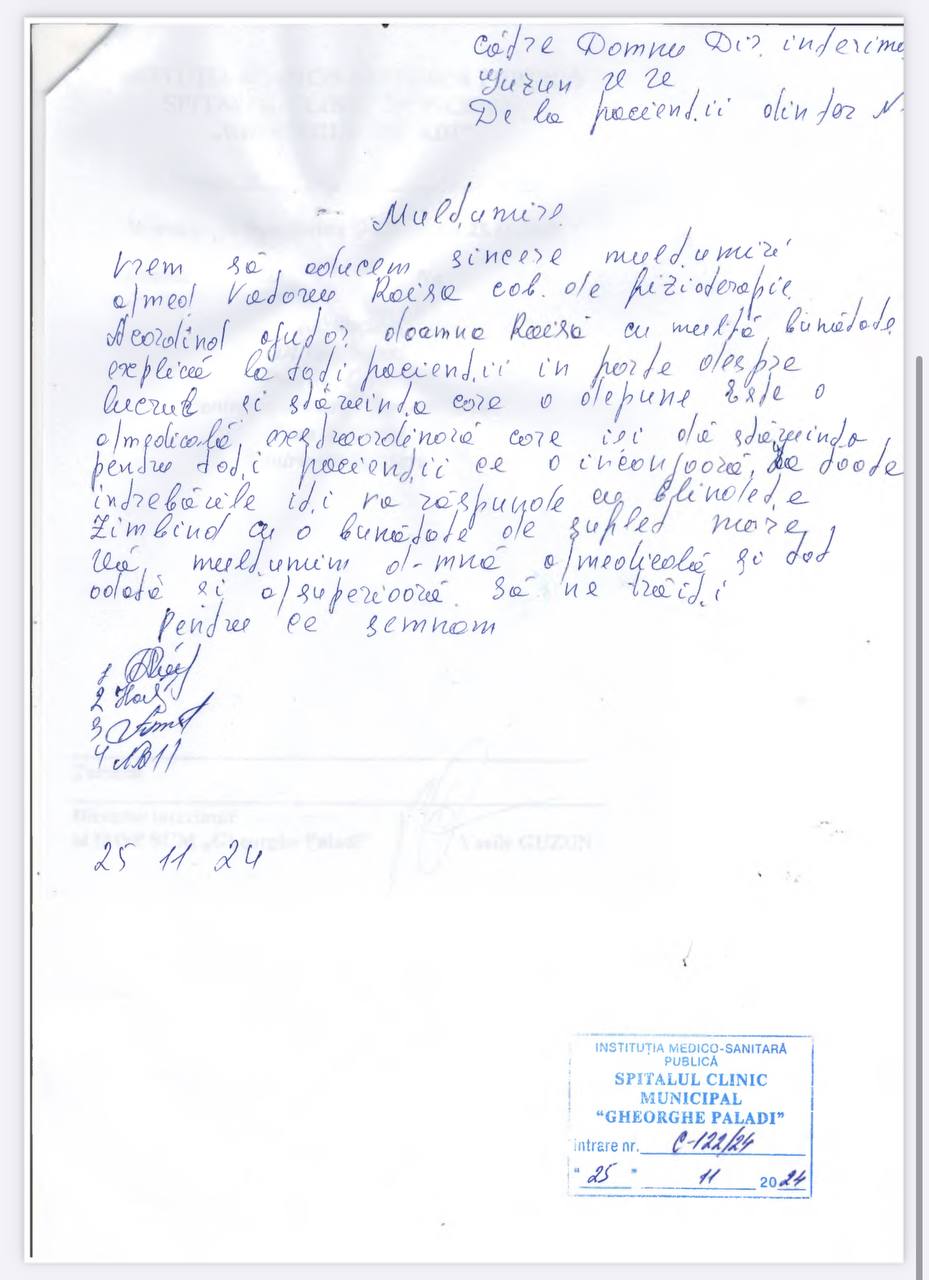 Către Domnu Dir. interime
Guzun
De la pacienții din
Mulțumire.
Vrem să aducem sincere mulțumiri
a/med Vadoreu Raisa cab. de fizioterapie.
Acordind ajutor doamna Raisa cu multă bunătate
explică la toți pacienții in parte despre
lucrul si stăruința care o depune Este o
a/medicală, extraordinară care isi dă stăruința
pentru toți pacienții ce o inconjoară, La toate
intrebările iți va răspunde cu blindețe
Zimbind cu o bunătate de suflet mare,
Vă mulțumim d-mnă a/medicală și tot
odată si a/superioară. Să ne trăiți
Pentru ce semnam
1
2
3
4
25 11 24
INSTITUȚIA MEDICO-SANITARĂ
PUBLICĂ
SPITALUL CLINIC
MUNICIPAL
“GHEORGHE PALADI”
intrare nr. C-122/24
“ 25 ” 11 2024
Director interimar
Vasile GUZUN